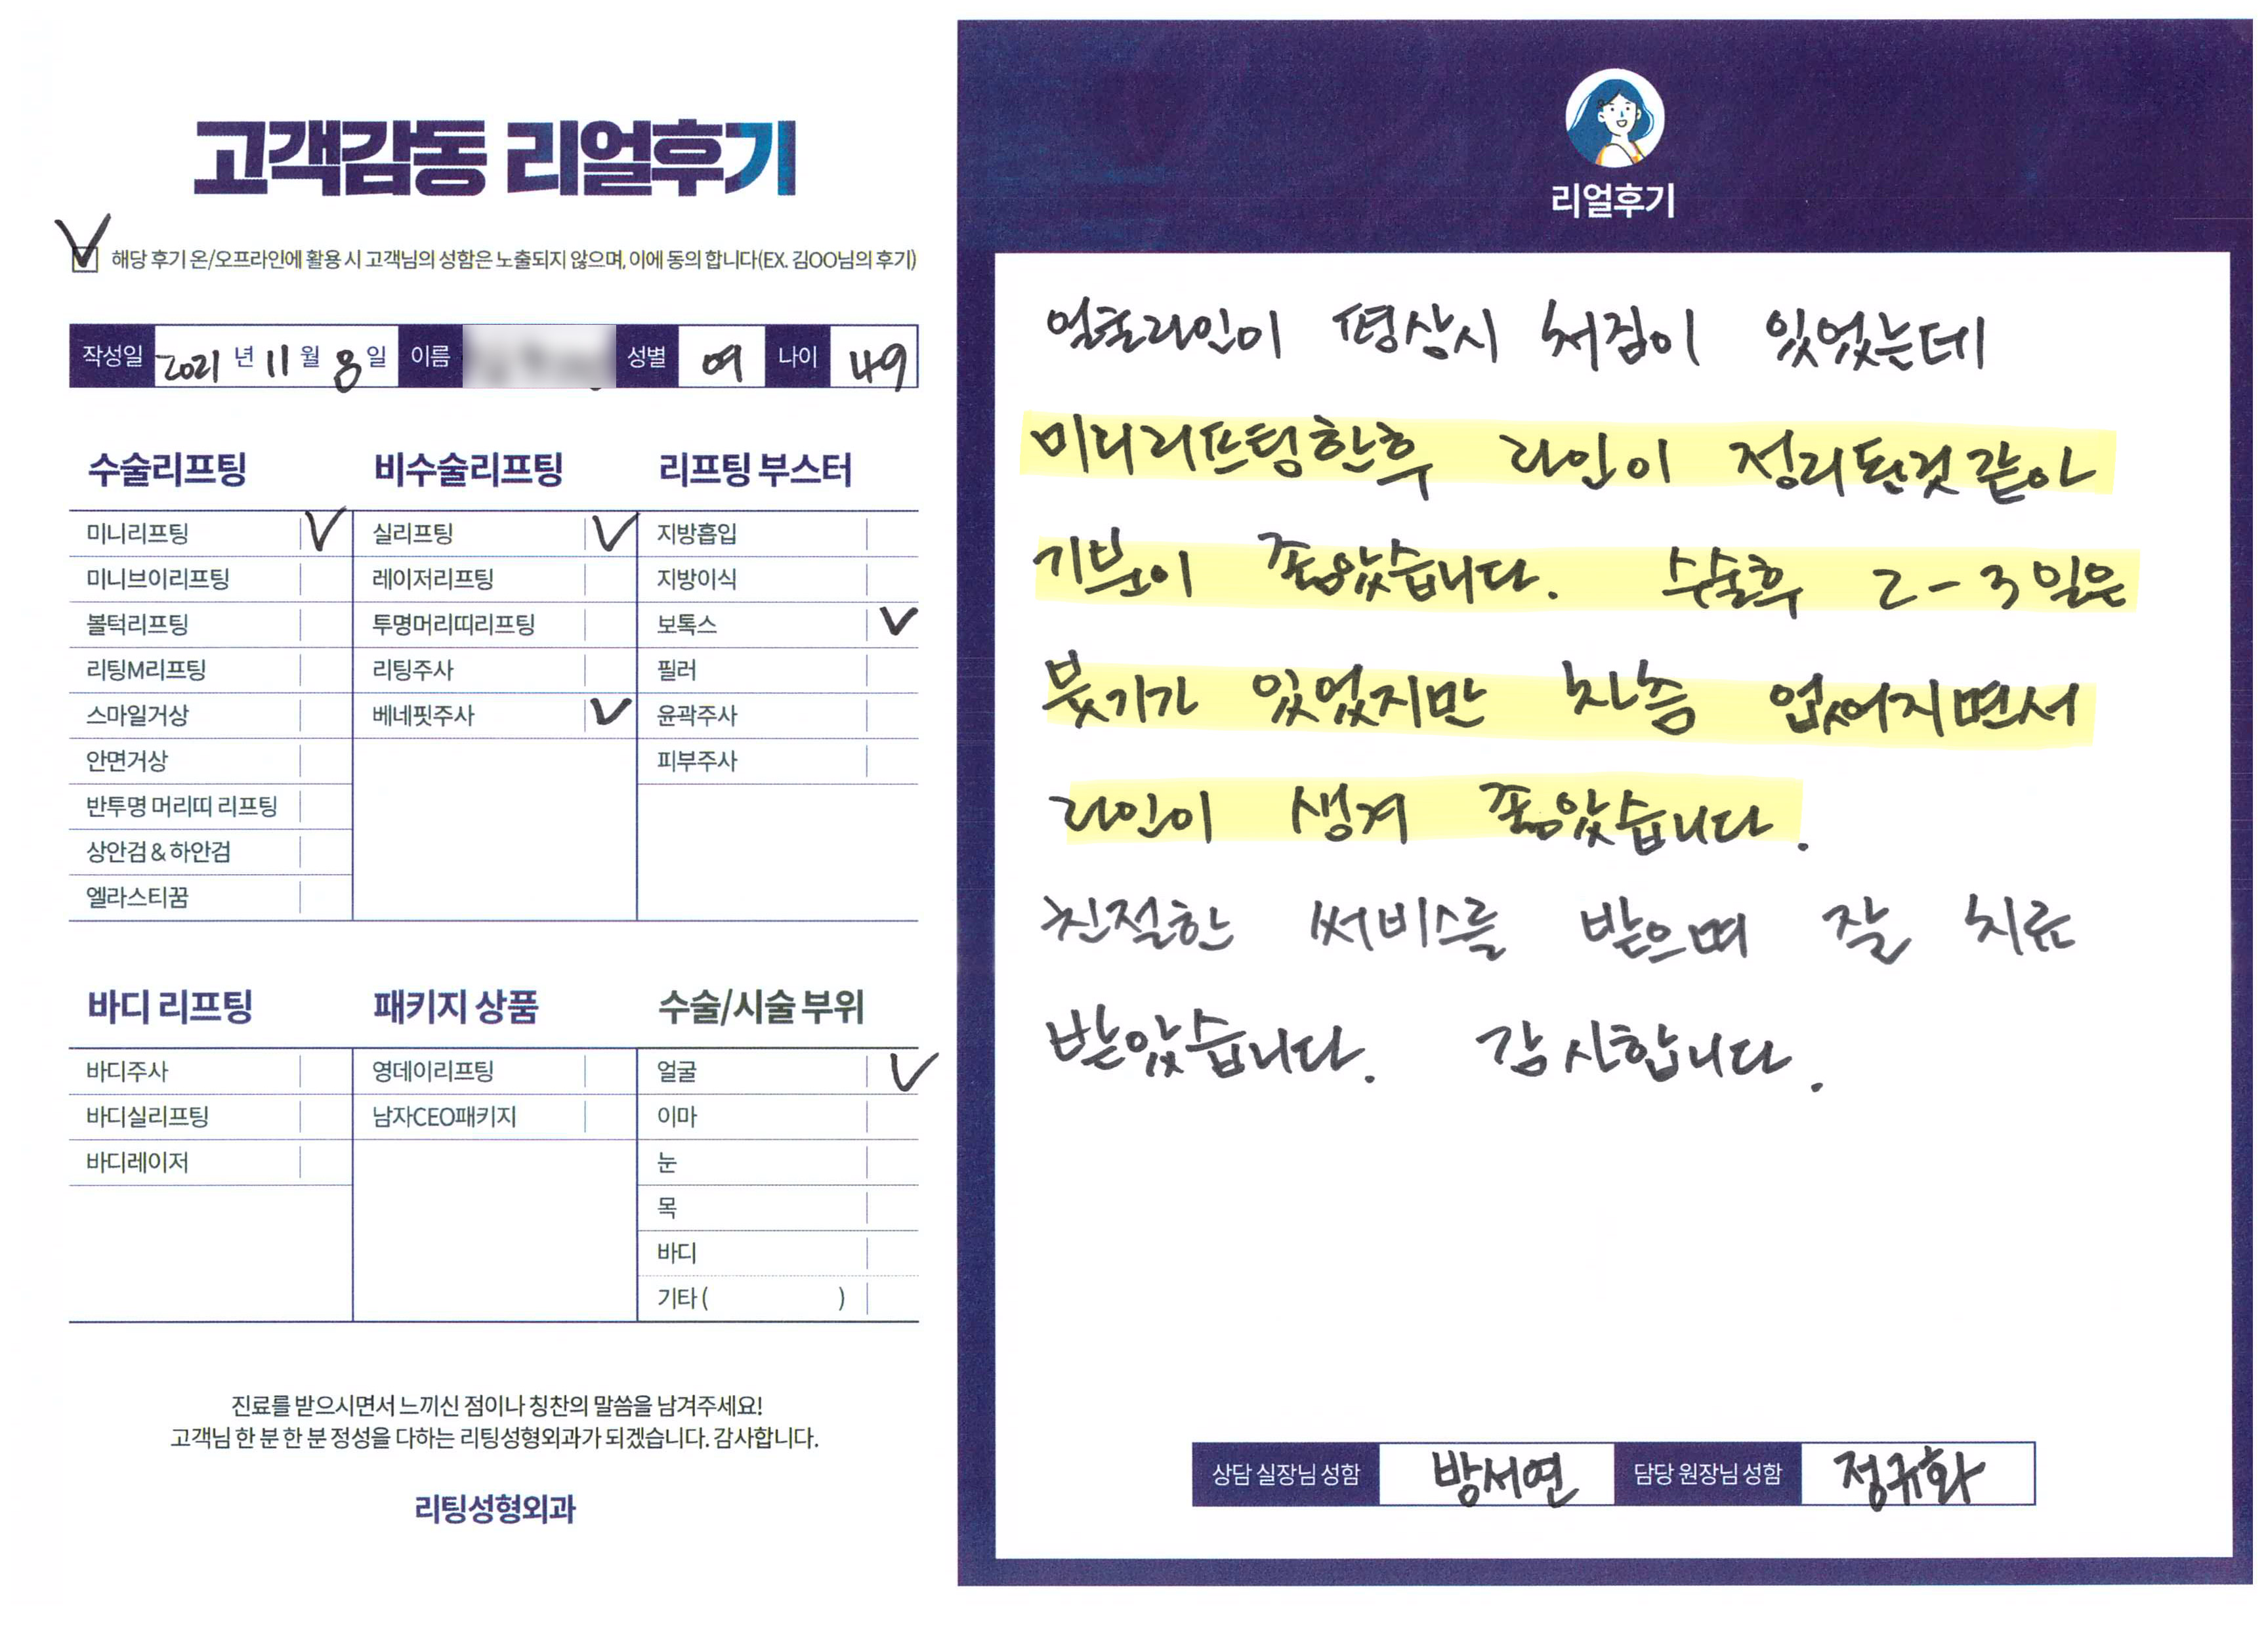 고객감동 리얼후기
해당 후기 온/오프라인에 활용 시 고객님의 성함은 노출되지 않으며, 이에 동의 합니다(EX. 김OO님의 후기)
작성일 2021 년 11 월 8 일 이름 성별 여 나이 49
수술리프팅 비수술리프팅 리프팅 부스터
미니리프팅 V 실리프팅 V 지방흡입
미니브이리프팅 레이저리프팅 지방이식
볼턱리프팅 투명머리띠리프팅 보톡스 V
리팅M리프팅 리팅주사 필러
스마일거상 베네핏주사 V 윤곽주사
안면거상 피부주사
반투명 머리띠 리프팅
상안검 & 하안검
엘라스티꿈
바디 리프팅 패키지 상품 수술/시술 부위
바디주사 영데이리프팅 얼굴 V
바디실리프팅 남자CEO패키지 이마
바디레이저 눈
목
바디
기타 ( )
진료를 받으시면서 느끼신 점이나 칭찬의 말씀을 남겨주세요!
고객님 한 분 한 분 정성을 다하는 리팅성형외과가 되겠습니다. 감사합니다.
리팅성형외과
리얼후기
얼굴라인이 평상시 처짐이 있었는데
미니리프팅한후 라인이 정리된것 같아
기분이 좋았습니다. 수술후 2-3일은
붓기가 있었지만 차츰 없어지면서
라인이 생겨 좋았습니다.
친절한 써비스를 받으며 잘 치료
받았습니다. 감사합니다.
상담 실장님 성함 방서연 담당 원장님 성함 정규화